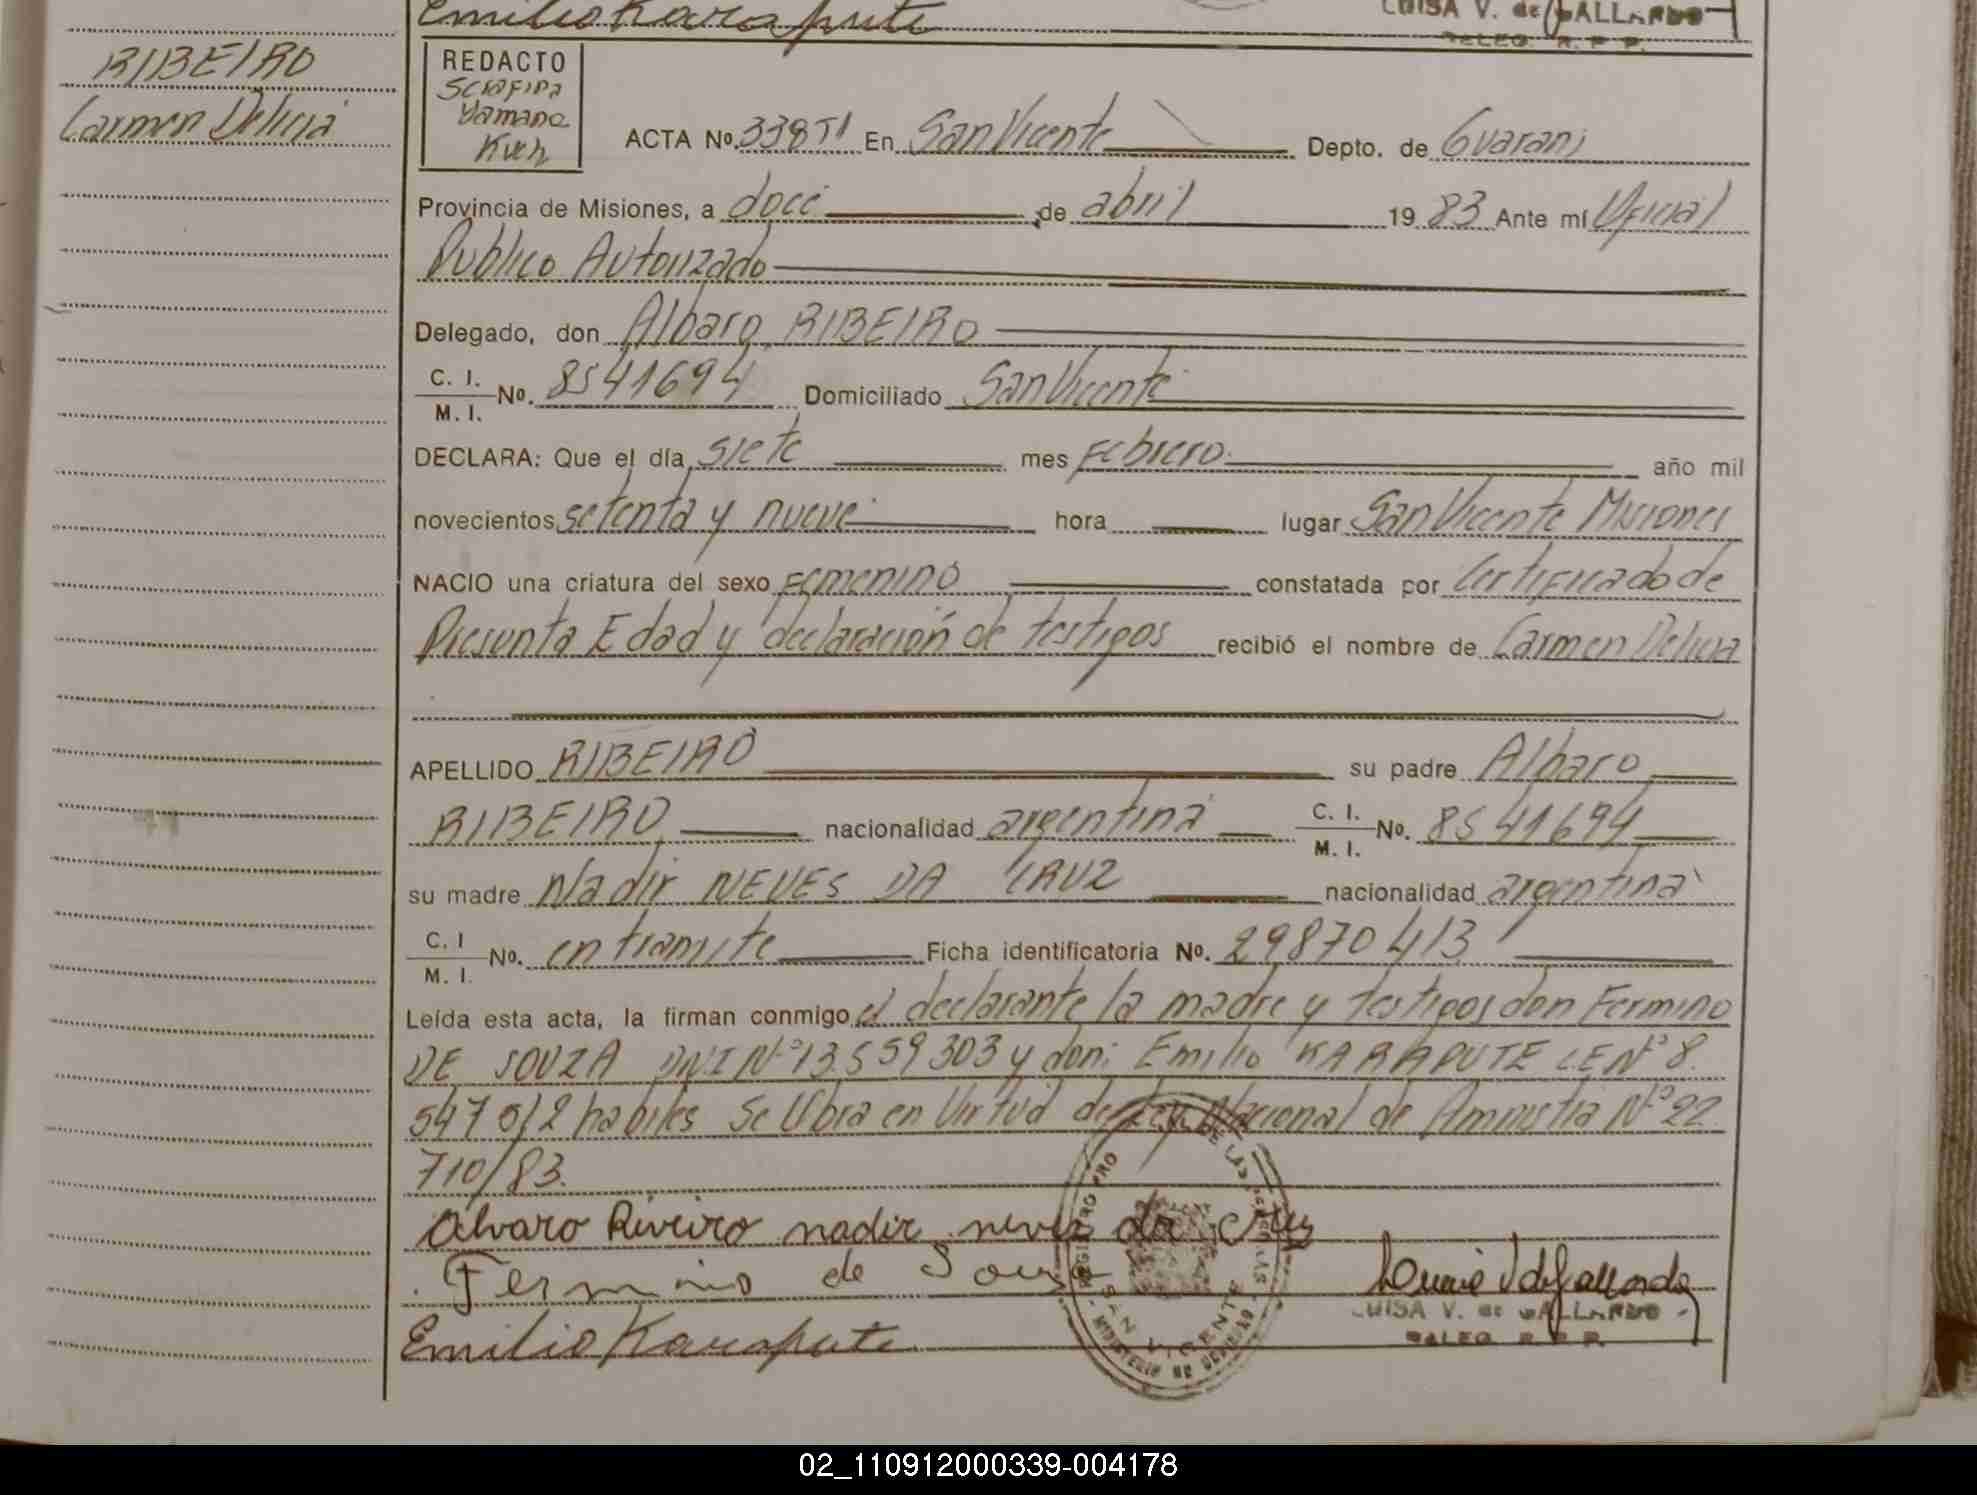 Emilio Karapute
LUISA V. de GALLARDO
DELEG. R. P. P.
RIBEIRO
Carmen Delicia
REDACTO
Serafina
Yamana
ACTA Nº. 338 T1 En San Vicente Depto. de Guarani
Provincia de Misiones, a doce de abril 19 83 Ante mí Oficial
Publico Autorizado
Delegado, don Albaro RIBEIRO
C. I.
M. I. Nº. 8541694 Domiciliado San Vicente
DECLARA: Que el día siete mes Febrero año mil
novecientos setenta y nueve hora lugar San Vicente Misiones
NACIO una criatura del sexo Femenino constatada por Certificado de
Presunta Edad y declaración de testigos recibió el nombre de Carmen Delicia
APELLIDO RIBEIRO su padre Albaro
RIBEIRO nacionalidad argentina C. I. M. I. Nº. 8541694
su madre Nadir NEVES DA CRUZ nacionalidad argentina
C. I M. I. Nº. en tramite Ficha identificatoria Nº. 29870413
Leída esta acta, la firman conmigo el declarante la madre y testigos don Fermino
DE SOUZA DNI Nº 13.559303 y don: Emilio KARAPUTE LE Nº 8.
547512 habiles Se Libra en Virtud de Ley Nacional de Amnistia Nº 22.
710/83.
Alvaro Riveiro nadir neves da cruz
Fermino de Souza
Emilio Karapute
LUISA V. de GALLARDO
DELEG. R. P. P.
SAN VICENTE
02_110912000339-004178